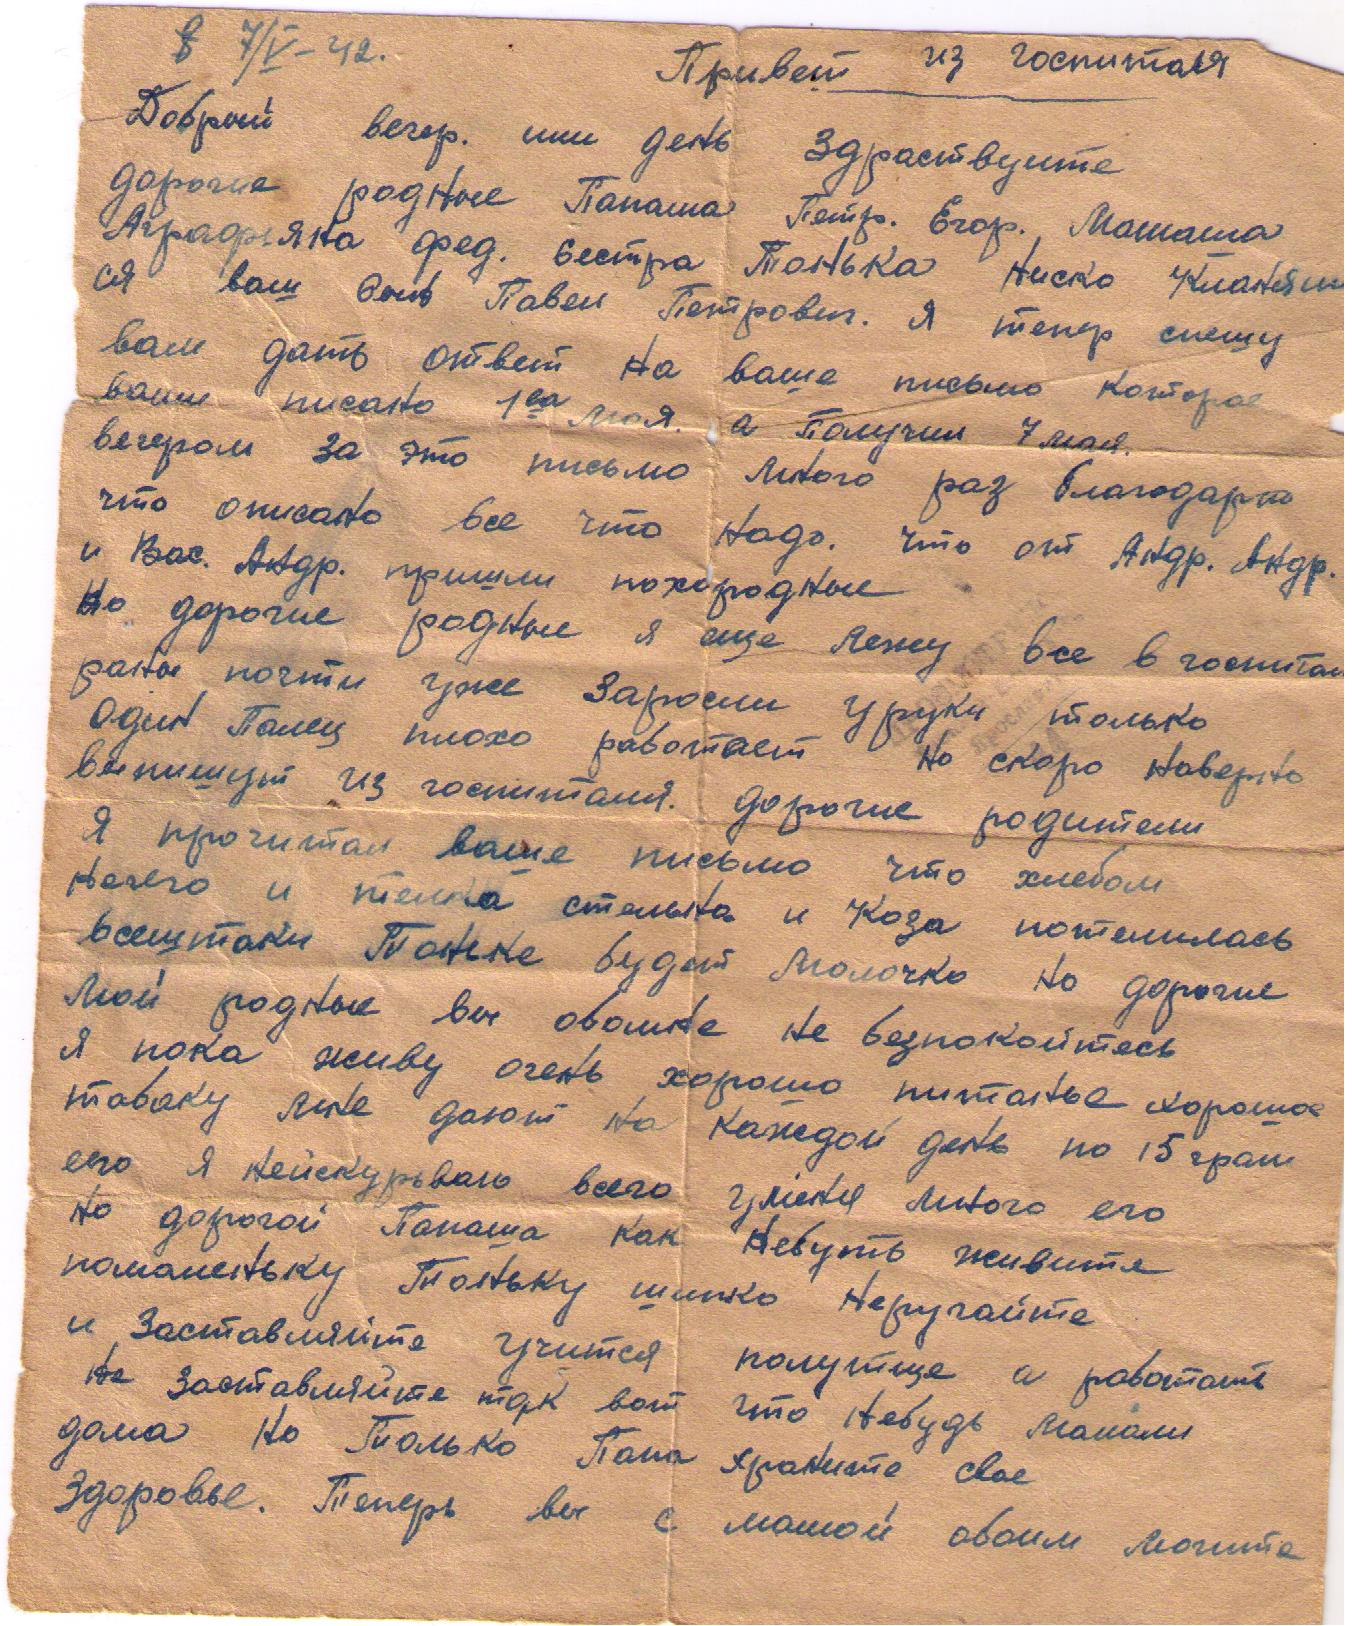 7/V-42.
Привет из госпиталя
Добрый вечер. или день Здраствуите
дорогие родные Папаша Петр. Егор. Мамаша
Аграфяна фед. Сестра Тонька ниско кланяит
ся ваш Сын Павел Петрович. Я тепер спешу
вам дать ответ на ваше письмо которое
ваши писано 1го мая. а Получил 7 мая.
вечером за это письмо много раз благодарю
что описано все что надо. что от Андр. Андр.
и Вас. Андр. пришли похородные
Но дорогие родные я еще лежу все в госпитал
раны почти уже Заросли уруки только
Один Палец плохо работает но скоро наверно
выпишут из госпиталя. дорогие родители
Я прочитал ваше письмо что хлебом
нечего и телка стельна и Коза потелилась
всештаки Тоньке будет молочко но дорогие
мои родные вы обомне не безпокойтесь
я пока живу очень хорошо питанье хорошое
табаку мне дают на каждой день по 15 грам
его я нейскурываю всего уменя много его
но дорогой Папаша как небуть живите
помаленьку Тоньку шипко неругайте
и Заставляйте учится получше а работать
не заставляйте так вот что небудь мапами
дома но Только Папа храните свое
Здоровье. Теперь вы с мамой обоим могите